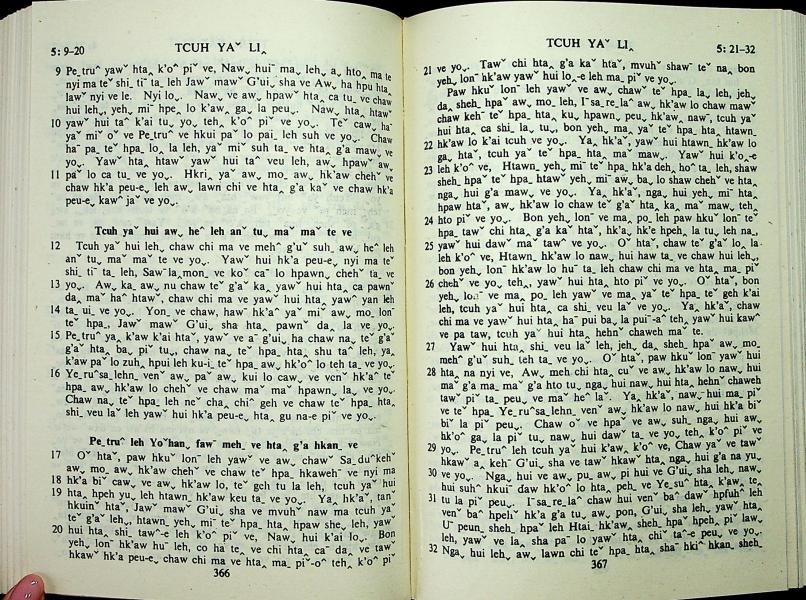 5: 9–20 TCUH YAˇ LI‸
9 Pe_truˆ yawˇ hta‸ k'oˆ piˇ ve, Naw˯ huiˉ ma˯ leh˯ a˯ hto˯ ma te
nyi ma teˇ shi_ tiˉ ta_ leh Jawˇ mawˇ G'ui˯ sha ve Aw˯ ha hpu hta‸
lawˇ nyi ve le. Nyi lo˯. Naw˯ ve aw˯ hpawˇ hta‸ ca tu_ ve chaw
hui leh˯, yeh˯ miˉ hpe˯ lo k'aw˯ ga˯ la peu˯. Naw˯ hta‸ htawˇ
10 yawˇ hui taˆ k'ai tu˯ yo˯ teh˯ k'oˆ piˇ ve yo˯. Teˇ caw˯ haˉ
yaˇ miˇ oˇ ve Pe_truˆ ve hkui paˇ lo pai_ leh suh ve yo˯. Chaw
haˉ pa_ teˇ hpa˯ lo˯ la leh, yaˇ miˇ suh ta_ ve hta‸ g'a maw˯ ve
yo˯. Yawˇ hta‸ htawˇ yawˇ hui taˆ veu leh, aw˯ hpawˇ aw˯
11 paˇ lo ca tu_ ve yo˯. Hkri˯ yaˇ aw˯ mo˯ aw˯ hk'aw chehˇ ve
chaw hk'a peu-e˯ leh aw˯ lawn chi ve hta‸ g'a kaˇ ve chaw hk'a
peu-e˯ kawˆ jaˇ ve yo˯.
Tcuh yaˇ hui aw˯ heˆ leh anˇ tu˯ maˇ maˇ te ve
12 Tcuh yaˇ hui leh˯ chaw chi ma ve mehˆ g'uˇ suh_ aw˯ heˆ leh
anˇ tu˯ maˇ maˇ te ve yo˯. Yawˇ hui hk'a peu-e˯ nyi ma teˇ
shi_ tiˉ ta_ leh, Sawˉla˯mon_ ve koˇ caˇ lo hpawn˯ chehˇ ta_ ve
13 yo˯. Aw˯ ka_ aw˯ nu chaw teˇ g'aˇ ka_ yawˇ hui hta‸ ca pawnˇ
da˯ maˇ haˆ htawˇ, chaw chi ma ve yawˇ hui hta‸ yawˆ yan leh
14 ta_ ui_ ve yo˯. Yon_ ve chaw, hawˉ hk'aˆ yaˇ miˇ aw˯ mo˯ lonˉ
teˇ hpa_ Jawˇ mawˇ G'ui˯ sha hta‸ pawnˇ da˯ la ve yo˯.
15 Pe_truˆ ya‸ k'aw k'ai htaˇ, yawˇ ve aˉ g'ui˯ ha chaw na˯ teˇ g'aˇ
g'aˇ hta‸ ba˯ piˇ tu˯, chaw na˯ teˇ hpa_ hta‸ shu taˆ leh, ya‸
k'aw paˇ lo zuh˯ hpui leh ku-i_ teˇ hpa_ aw˯ hk'oˇ lo teh ta_ ve yo˯.
16 Ye_ruˆsa_lehn_ venˇ aw˯ paˇ aw˯ kui lo caw˯ ve venˇ hk'aˆ teˇ
hpa_ aw˯ hk'aw lo chehˇ ve chaw maˇ maˇ hpawn˯ la˯ ve yo˯.
Chaw na˯ teˇ hpa_ leh neˇ cha˯ chiˆ geh ve chaw teˇ hpa_ hta‸
shi_ veu laˇ leh yawˇ hui hk'a peu-e˯ hta‸ gu na-e piˇ ve yo˯.
Pe_truˆ leh Yoˇhan˯ fawˇ meh_ ve hta‸ g'a hkan_ ve
17 Oˇ htaˇ, paw hkuˇ lonˉ leh yawˇ ve aw˯ chawˇ Sa_duˆkehˇ
aw˯ mo˯ aw˯ hk'aw chehˇ ve chaw teˇ hpa_ hkawehˉ ve nyi ma
18 hk'a biˇ caw˯ ve aw˯ hk'aw lo˯ teˇ geh tu la leh, tcuh yaˇ hui
19 hta‸ hpeh yu leh htawn_ hk'aw keu ta_ ve yo˯. Ya‸ hk'aˇ, tanˇ
hkuinˉ htaˇ, Jawˇ mawˇ G'ui˯ sha ve mvuhˇ naw ma tcuh yaˇ
teˇ g'aˇ leh˯ htawn_ yeh˯ miˉ teˇ hpa_ hta‸ hpaw she˯ leh, yawˇ
20 hui hta‸ shi_ tawˆ-e leh k'oˆ piˇ ve, Naw˯ hui k'ai lo˯. Bon
yeh˯ lonˉ hk'aw huˉ leh, co ha te˯ ve chi hta‸ caˉ da˯ ve tawˇ
hkawˇ hk'a peu-e˯ chaw chi ma ve hta‸ ma_ piˇ-oˆ teh˯ k'oˆ piˇ
366
TCUH YAˇ LI‸ 5: 21–32
21 ve yo˯. Tawˇ chi hta‸ g'a kaˇ htaˇ, mvuhˇ shawˉ teˇ na˯ bon
yeh˯ lonˉ hk'aw yawˇ hui lo˯-e leh ma_ piˇ ve yo˯.
Paw hkuˇ lonˉ leh yawˇ ve aw˯ chawˇ teˇ hpa_ la˯ leh, jeh˯
da˯ sheh_ hpaˇ aw˯ mo˯ leh, Iˉsa_re_laˆ aw˯ hk'aw lo chaw mawˇ
chaw kehˉ teˇ hpa_ hta‸ ku˯ hpawn˯ peu˯ hk'aw nawˉ, tcuh yaˇ
hui hta‸ ca shi_ la˯ tu˯, bon yeh˯ ma˯ yaˇ teˇ hpa_ hta‸ htawn_
22 hk'aw lo k'ai tcuh ve yo˯. Ya‸ hk'aˇ, yawˇ hui htawn_ hk'aw lo
ga˯ htaˇ, tcuh yaˇ teˇ hpa_ hta‸ maˇ maw˯. Yawˇ hui k'o˯-e
23 leh k'oˆ ve, Htawn_ yeh˯ miˉ teˇ hpa_ hk'a deh˯ hoˆ ta_ leh, shaw
sheh_ hpaˇ teˇ hpa_ htawˇ yeh˯ miˉ aw˯ ba˯ lo shaw chehˇ ve hta‸
nga˯ hui g'a maw˯ ve yo˯. Ya‸ hk'aˇ, nga˯ hui yeh˯ miˉ hta‸
hpaw htaˇ, aw˯ hk'aw lo chaw teˇ g'aˇ hta‸ ka˯ maˇ maw˯ teh˯
24 hto piˇ ve yo˯. Bon yeh˯ lonˉ ve ma˯ po˯ leh paw hkuˇ lonˉ teˇ
hpa_ tawˇ chi hta‸ g'a kaˇ htaˇ, hk'a˯ hk'e hpeh˯ la tu˯ leh na˯
25 yawˇ hui dawˇ maˇ tawˆ ve yo˯. Oˇ htaˇ, chaw teˇ g'aˇ lo˯ la
leh k'oˆ ve, Htawn_ hk'aw lo naw˯ hui haw ta_ ve chaw hui leh˯
bon yeh˯ lonˉ hk'aw lo huˉ ta_ leh chaw chi ma ve hta‸ ma_ piˇ
26 chehˇ ve yo˯ teh˯ yawˇ hui hta‸ hto piˇ ve yo˯. Oˇ htaˇ, bon
yeh˯ lonˉ ve ma˯ po˯ leh yawˇ ve ma˯ yaˇ teˇ hpa_ teˇ geh k'ai
leh, tcuh yaˇ hui hta‸ ca shi_ veu laˇ ve yo˯. Ya‸ hk'aˇ, chaw
chi ma ve yawˇ hui hta‸ haˉ pui ba˯ la puiˉ-aˆ teh˯ yawˇ hui kawˆ
ve pa taw˯ tcuh yaˇ hui hta‸ hehn_ chaweh maˇ te.
27 Yawˇ hui hta‸ shi_ veu laˇ leh, jeh˯ da˯ sheh_ hpaˇ aw˯ mo˯
mehˆ g'uˇ suh_ teh ta_ ve yo˯. Oˇ htaˇ, paw hkuˇ lonˉ yawˇ hui
28 hta‸ na nyi ve, Aw˯ meh chi hta‸ cuˇ ve aw˯ hk'aw lo naw˯ hui
maˇ g'a ma_ maˇ g'a hto tu˯ nga˯ hui naw˯ hui hta‸ hehn_ chaweh
tawˇ piˇ ta_ peu˯ ve maˇ heˆ laˇ. Ya‸ hk'aˇ, naw˯ hui ma_ piˇ
ve teˇ hpa_ Ye_ruˆsa_lehn_ venˇ aw˯ hk'aw lo naw˯ hui hk'a biˇ
biˇ la piˇ peu˯. Chaw oˇ ve hpaˇ ve aw˯ suh_ nga˯ hui aw˯
hk'oˇ ga˯ la piˇ tu˯ naw˯ hui dawˇ ta_ ve yo˯ teh˯ k'oˆ piˇ ve
29 yo˯. Pe_truˆ leh tcuh yaˇ hui k'aw˯ k'oˆ ve, Chaw ya‸ ve tawˇ
hkawˇ a˯ kehˉ G'ui˯ sha ve tawˇ hkawˇ hta‸ nga˯ hui g'a na yu˯
30 ve yo˯. Nga˯ hui ve aw˯ pu_ aw˯ pi hui ve G'ui˯ sha leh˯ naw˯
hui suhˆ hkuiˉ dawˇ hk'oˇ lo hta‸ peh˯ ve Ye_suˆ hta‸ k'aw‸ te˯
31 tu la piˇ peu˯. Iˉsa_re_laˆ chaw hui venˇ baˆ dawˇ hpfuhˆ leh
venˇ baˆ hpehˇ hk'a g'a tu˯ aw˯ pon˯ G'ui˯ sha leh˯ yawˇ hta‸
Uˉ peun_ sheh_ hpaˇ leh Htai_ hk'aw‸ sheh_ hpaˇ hpeh˯ piˇ law˯
leh, yawˇ ve la‸ sha paˉ lo yawˇ hta‸ chiˇ taˆ-e peu˯ ve yo˯.
32 Nga˯ hui leh˯ aw˯ lawn chi teˇ hpa_ hta‸ shaˉ hkiˆ hkan_ sheh_
367